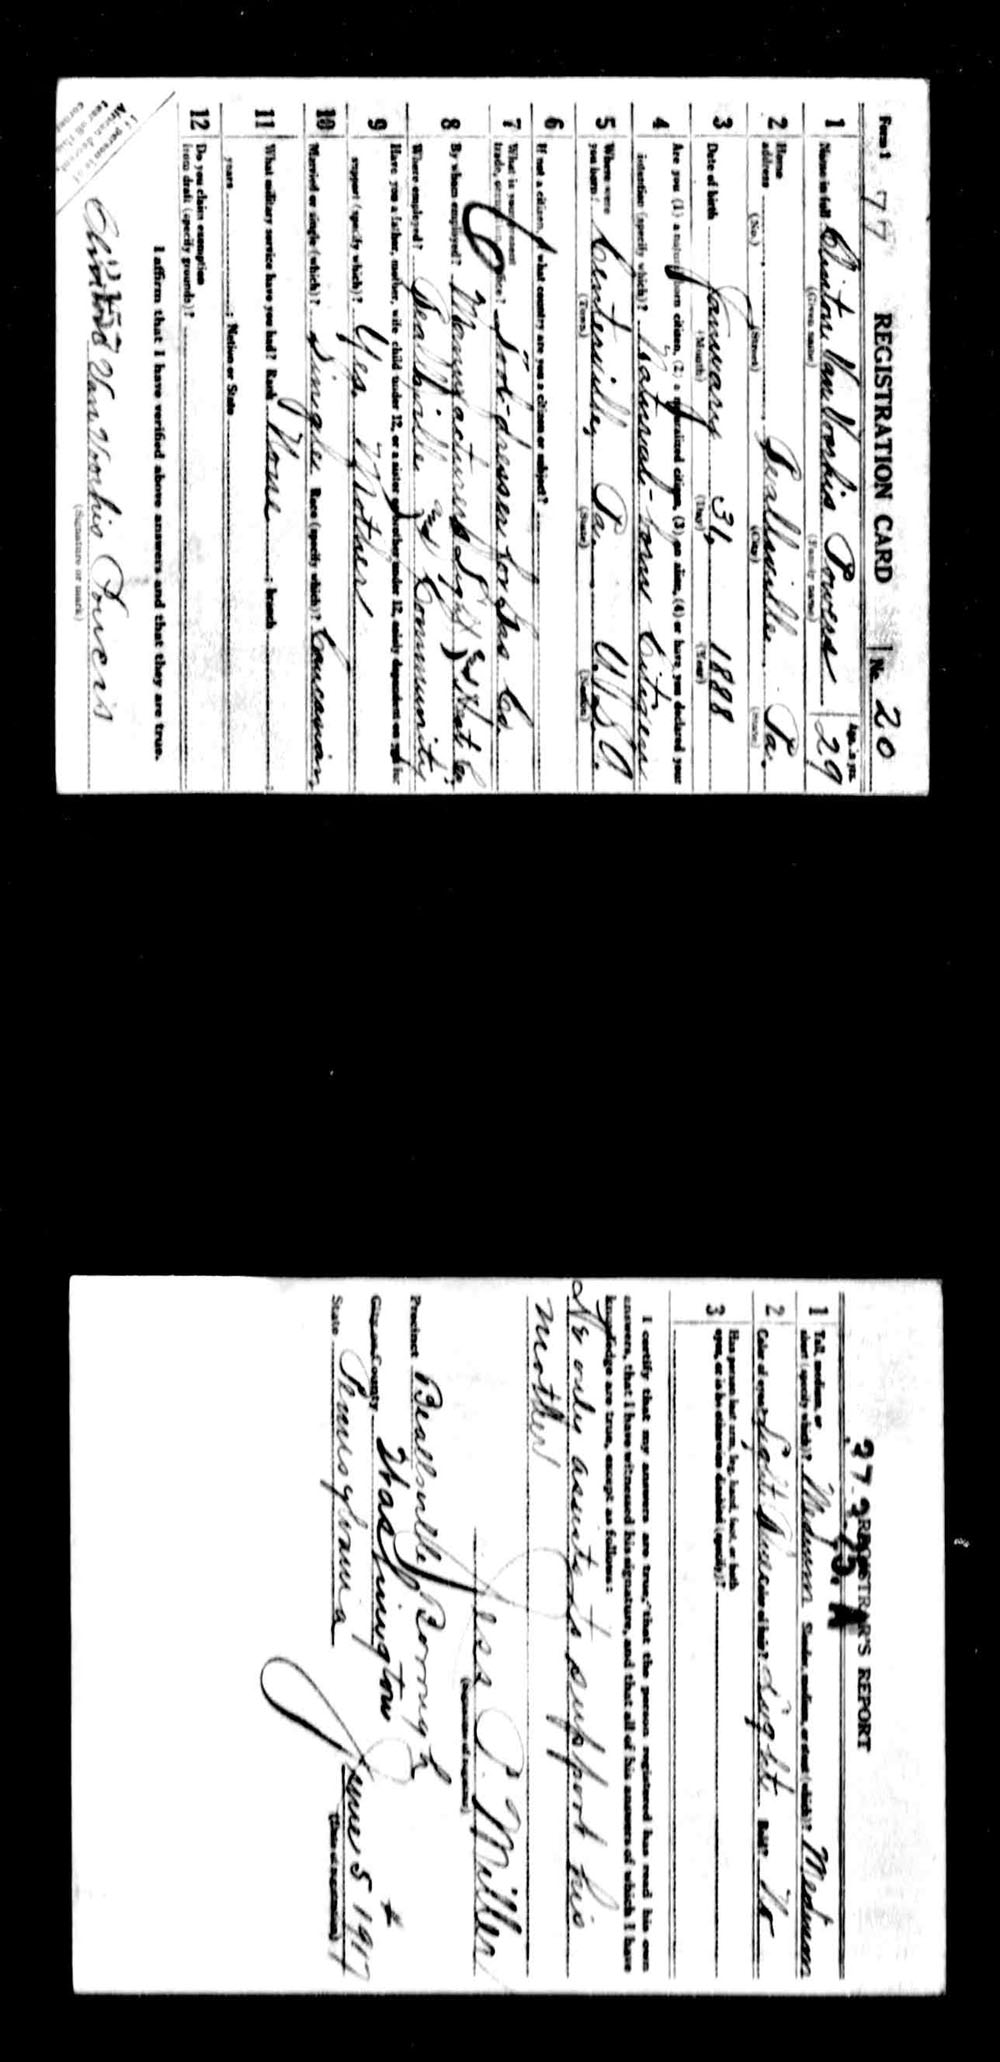 Form 1 77 REGISTRATION CARD No. 20
1 Name in full Clinton Van Voorhis Powers Age, in yrs. 29
(Given name) (Family name)
2 Home address Beallsville Pa.
(No.) (Street) (City) (State)
3 Date of birth January 31, 1888
(Month) (Day) (Year)
4 Are you (1) a natural-born citizen, (2) a naturalized citizen, (3) an alien, (4) or have you declared your
intention (specify which)? Natural-born Citizen
5 Where were you born? Centerville, Pa. U.S.A.
(Town) (State) (Nation)
6 If not a citizen, of what country are you a citizen or subject?
7 What is your present trade, occupation, or office? Tool-dresser for Gas Co.
8 By whom employed? Manufacturers Light and Heat Co.
Where employed? Beallsville and Community
9 Have you a father, mother, wife, child under 12, or a sister or brother under 12, solely dependent on you for
support (specify which)? Yes. Mother
10 Married or single (which)? Single Race (specify which)? Caucasian
11 What military service have you had? Rank None ; branch
years ; Nation or State
12 Do you claim exemption
from draft (specify grounds)?
I affirm that I have verified above answers and that they are true.
Van Voorhis Powers
(Signature or mark)
If person is of
African descent
tear off this
corner
REGISTRAR'S REPORT
1 Tall, medium, or
short (specify which)? Medium Slender, medium, or stout (which)? Medium
2 Color of eyes? Light Color of hair? Light Bald? No
3 Has person lost arm, leg, hand, foot, or both
eyes, or is he otherwise disabled (specify)?
I certify that my answers are true, that the person registered has read his own
answers, that I have witnessed his signature, and that all of his answers of which I have
knowledge are true, except as follows:
He only assists to support his
mother
Jess P. Miller
(Signature of registrar)
Precinct Beallsville Borough
City or County Washington
State Pennsylvania June 5 1917
(Date of registration)